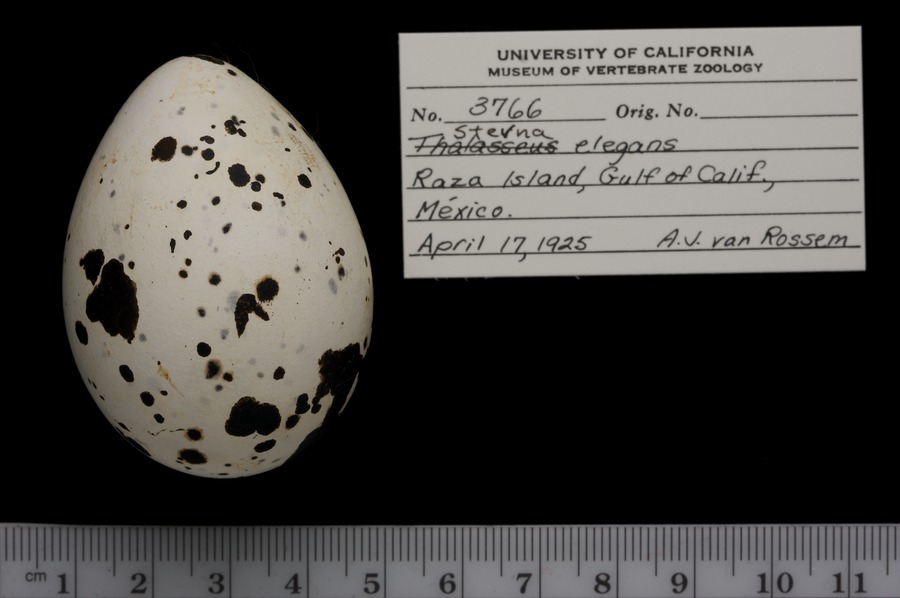 UNIVERSITY OF CALIFORNIA
MUSEUM OF VERTEBRATE ZOOLOGY
No. 3766 Orig. No.
Sterna
Thalasseus elegans
Raza Island, Gulf of Calif.,
México.
April 17, 1925 A.J. van Rossem
cm 1 2 3 4 5 6 7 8 9 10 11